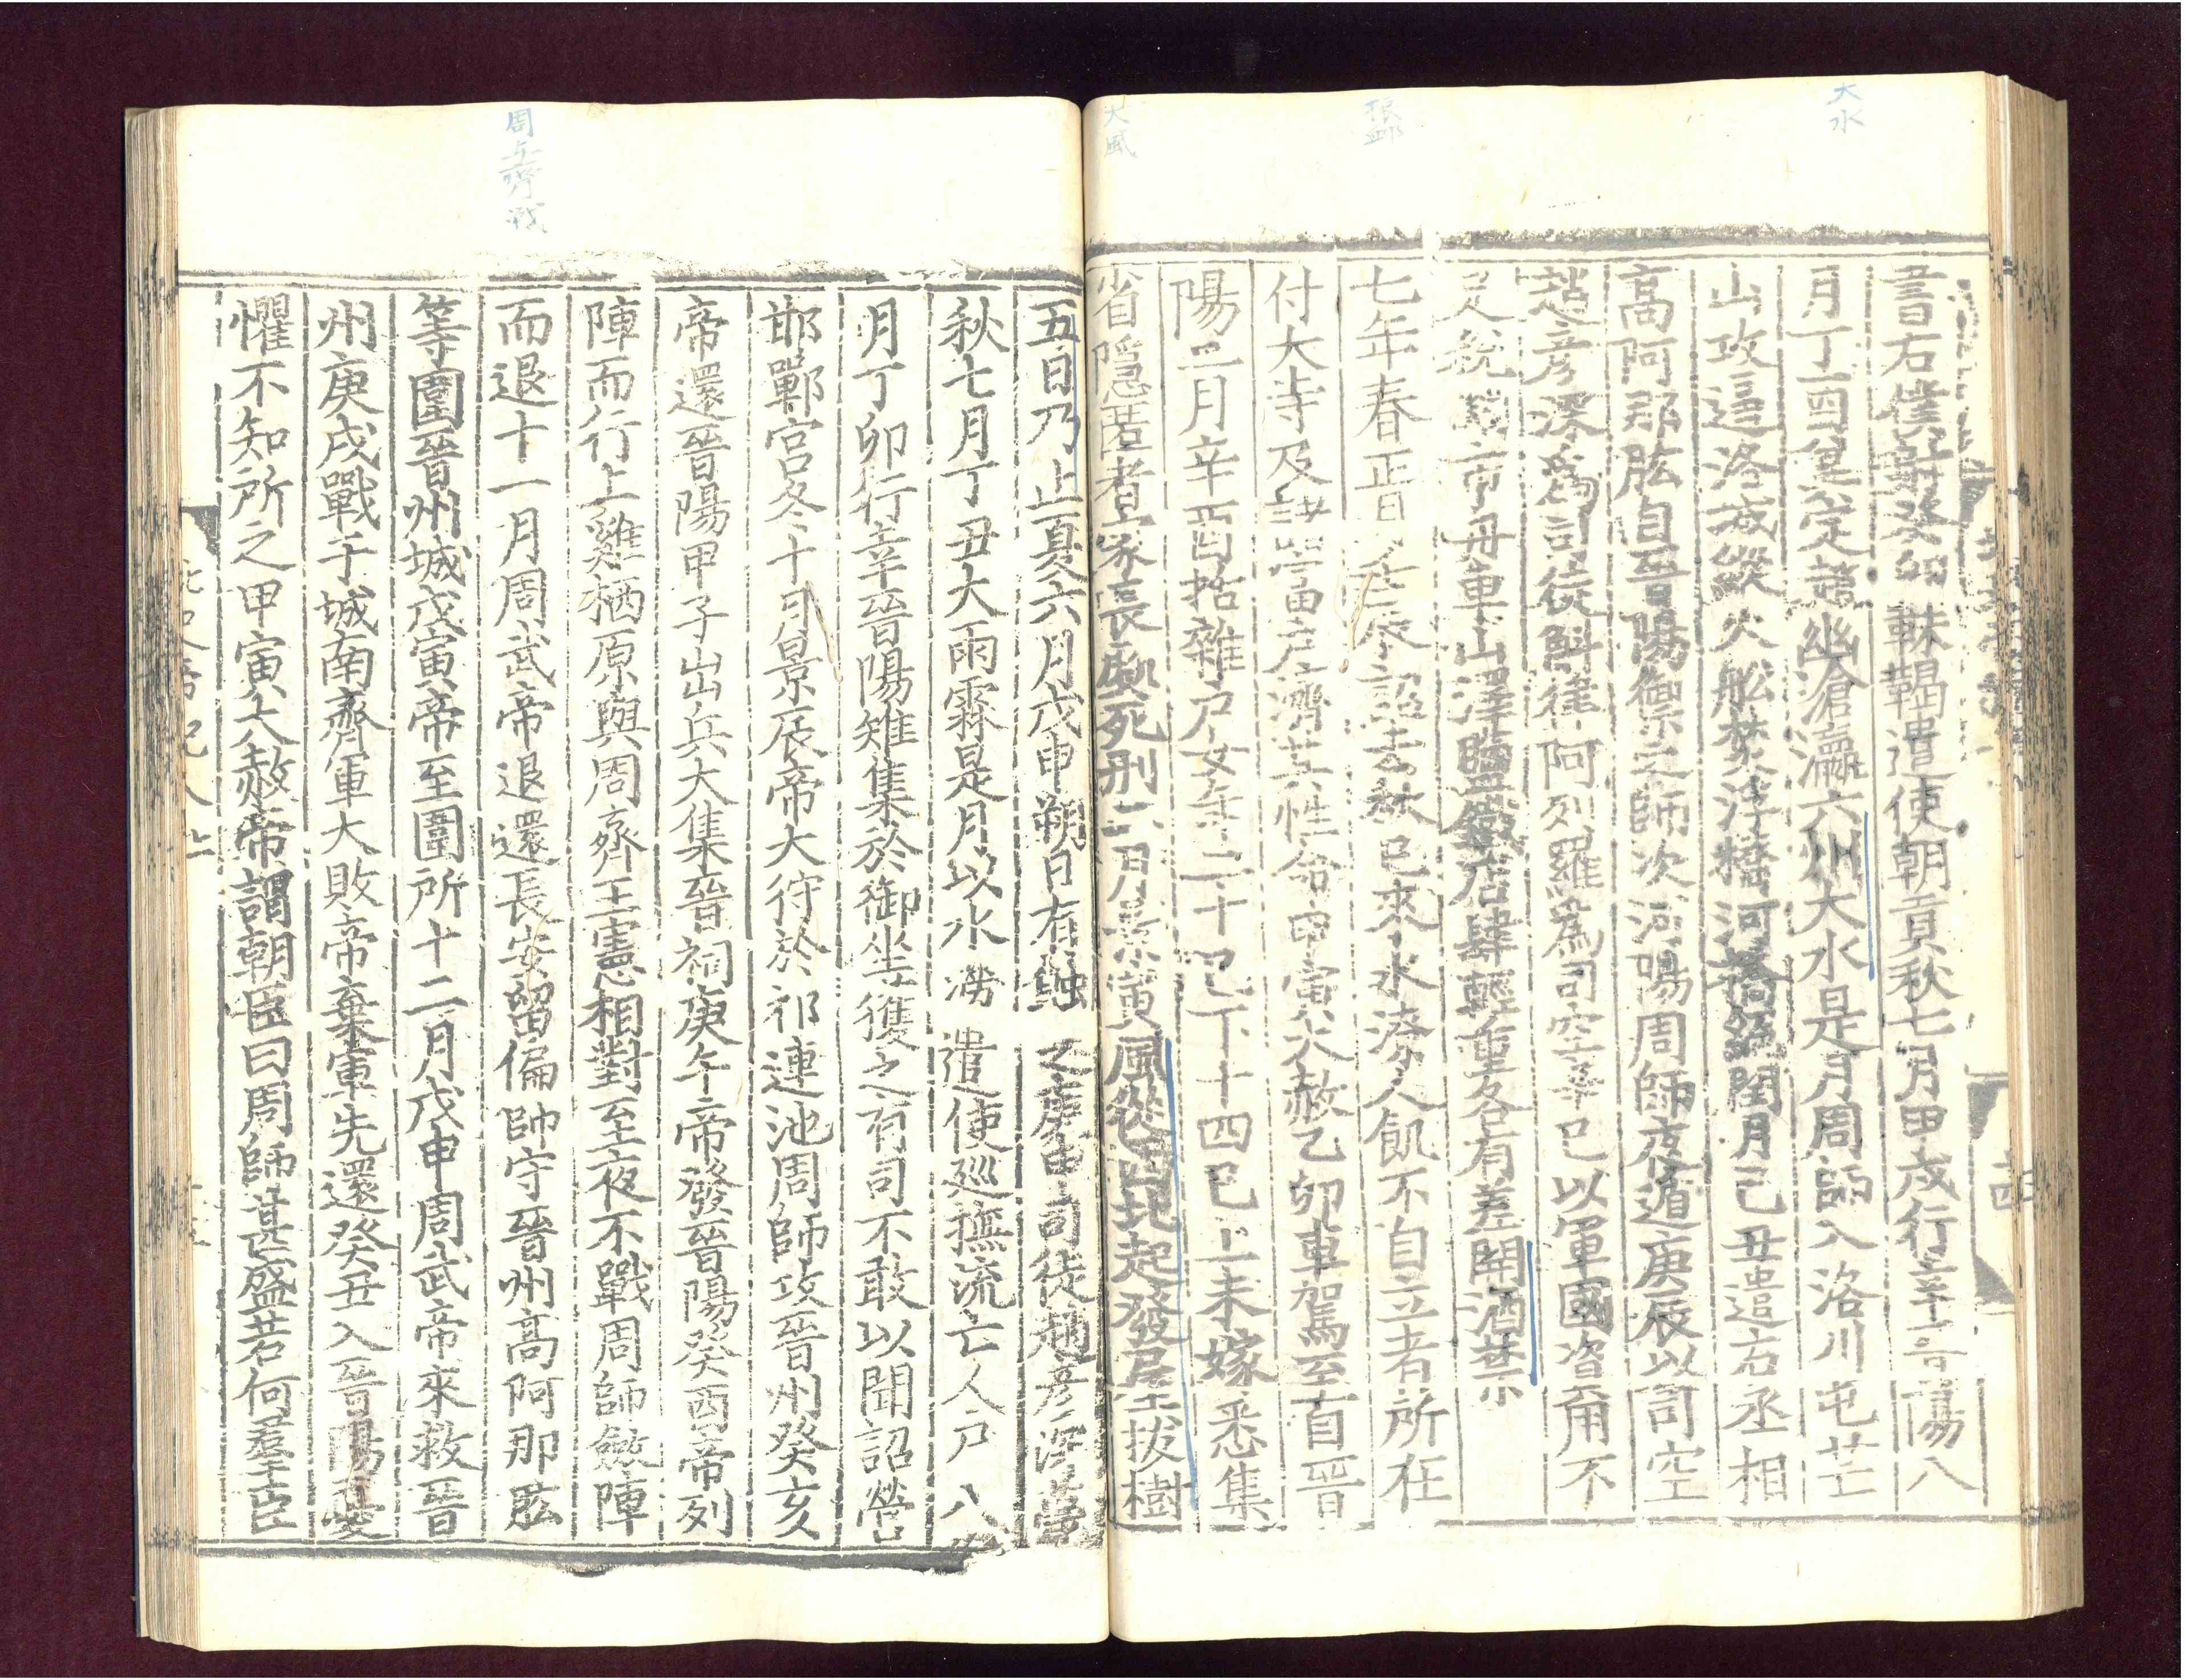 大水
賑邺
大風
書右僕射癸卯靺鞨遣使朝貢秋七月甲戌行幸晉陽八
月丁酉冀定趙幽滄瀛六州大水是月周師入洛川屯芒
山攻逼洛城縱火舩焚浮橋河橋絕閏月己丑遣右丞相
高阿那肱自晉陽禦之師次河陽周師夜遁庚辰以司空
趙彥深為司徒斛律阿列羅為司空辛巳以軍國資用不
足稅關市舟車山澤鹽鐵店肆輕重各有差開酒禁
七年春正月壬辰詔去秋已來水潦人飢不自立者所在
付大寺及諸富戶濟其性命甲寅大赦乙卯車駕至自晉
陽二月辛酉括雜戶女年二十已下十四已上未嫁悉集
省隱匿者家長處死刑二月景寅風從西北起發屋拔樹
周与齊戰
五日乃止夏六月戊申朔日有蝕之庚申司徒趙彥深薨
秋七月丁丑大雨霖是月以水澇遣使巡撫流亡人戶八
月丁卯行幸晉陽雉集於御坐獲之有司不敢以聞詔營
邯鄲宮冬十月景辰帝大狩於祁連池周師攻晉州癸亥
帝還晉陽甲子出兵大集晉祠庚午帝發晉陽癸酉帝列
陣而行上雞栖原與周齊王憲相對至夜不戰周師斂陣
而退十一月周武帝退還長安留偏師守晉州高阿那肱
等圍晉州城戊寅帝至圍所十二月戊申周武帝來救晉
州庚戌戰于城南齊軍大敗帝棄軍先還癸丑入晉陽憂
懼不知所之甲寅大赦帝謂朝臣曰周師甚盛若何羣臣